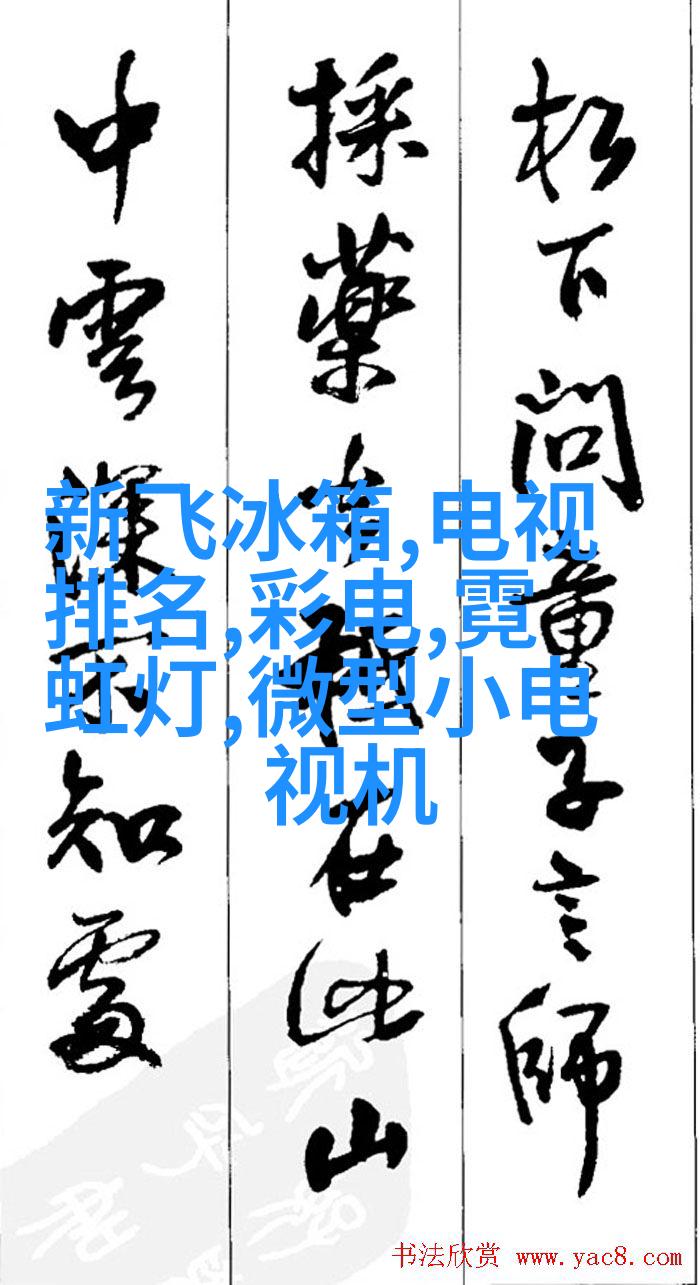 松下問童子言師
採藥去在此山
中雲深不知處
新飞冰箱,电视
排名,彩电,霓
虹灯,微型小电
视机
书法欣赏 www.yac8.com